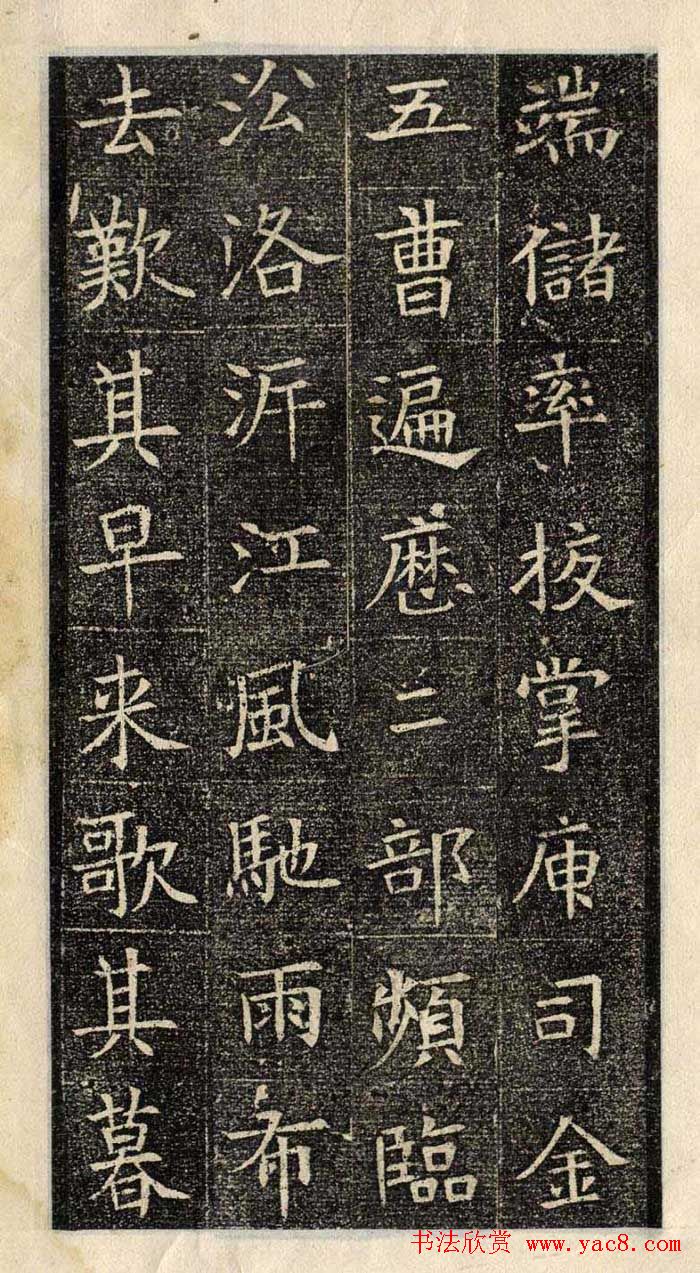 端儲率拔掌庫司金
五曹遍歷二部頻臨
㳂洛泝江風馳雨布
去歎其早来歌其暮
书法欣赏 www.yac8.com